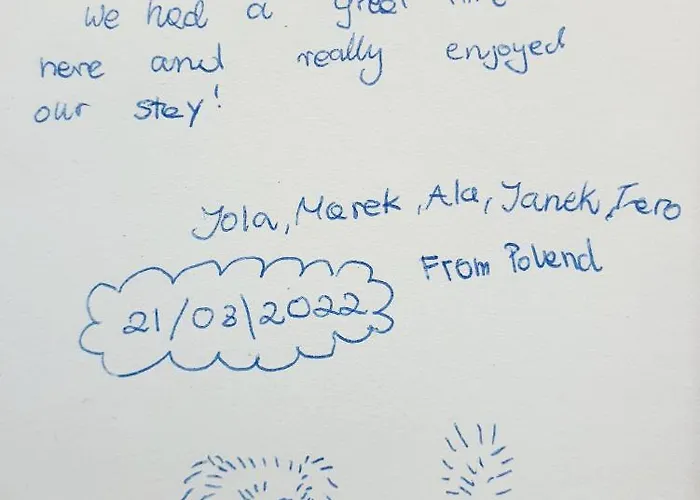 We had a great time
here and really enjoyed
our stay!
Jola, Marek, Ala, Janek, Iero
From Polend
21/03\2022